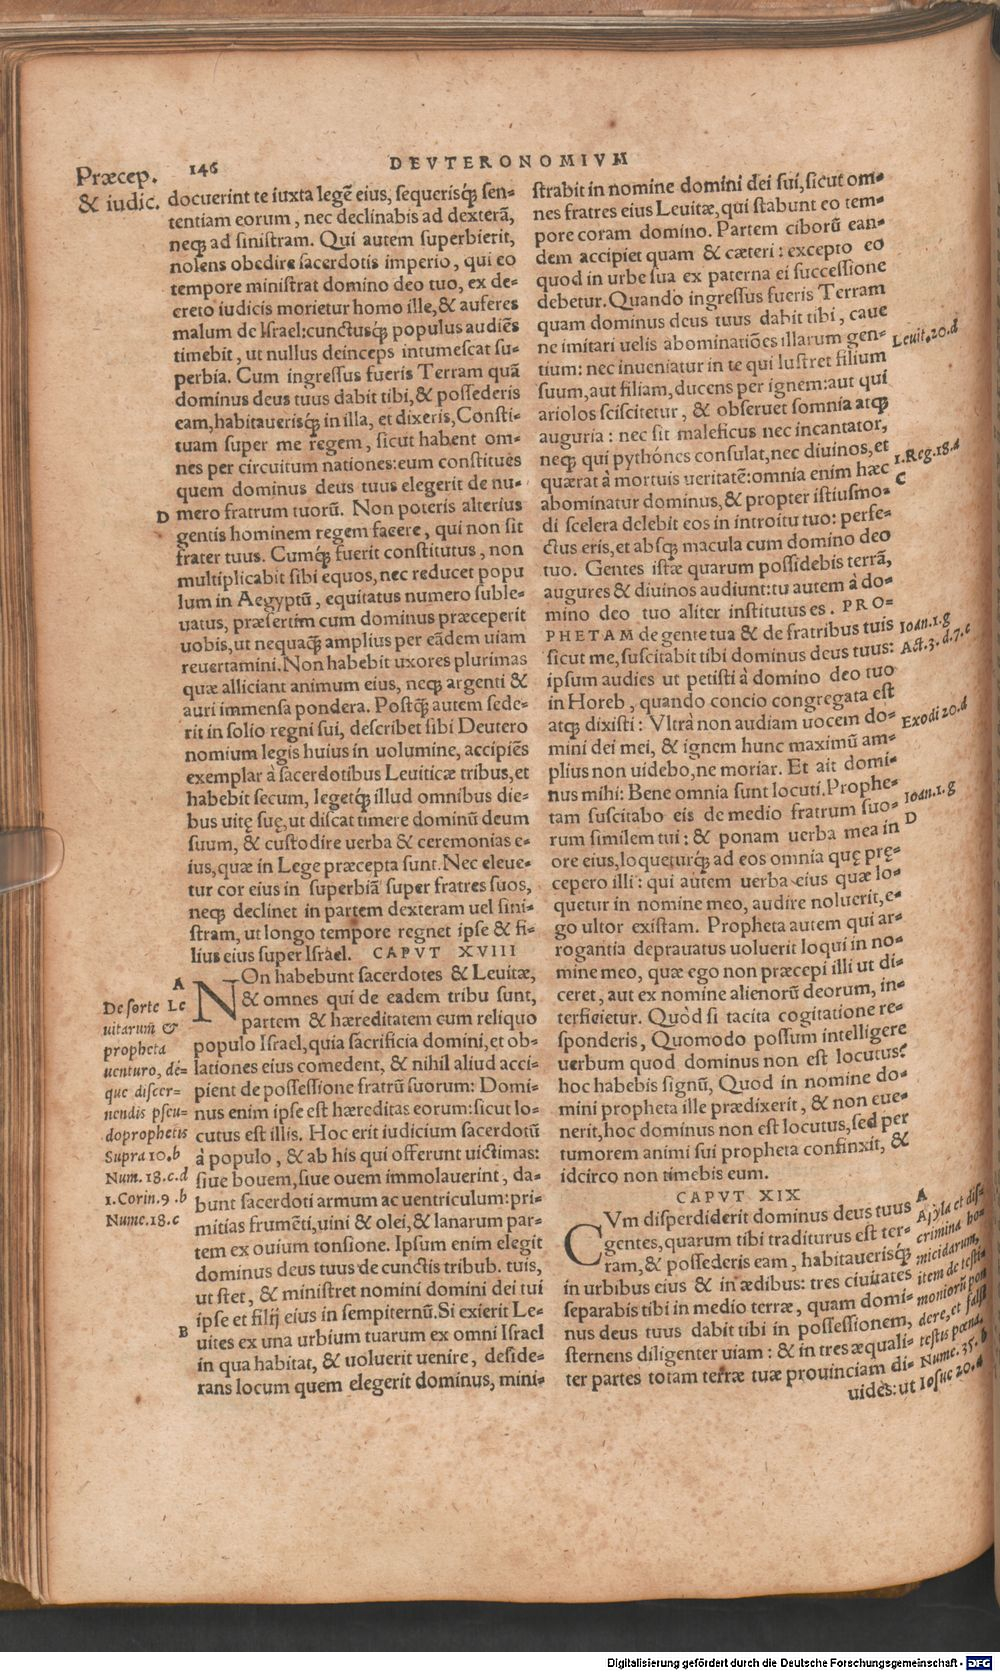 Præcep.
& iudic.
146
DEVTERONOMIVM
docuerint te iuxta legẽ eius, sequerisq́ sen-
tentiam eorum, nec declinabis ad dexterã,
neq; ad sinistram. Qui autem superbierit,
nolens obedire sacerdotis imperio, qui eo
tempore ministrat domino deo tuo, ex de-
creto iudicis morietur homo ille, & auferes
malum de Israel: cunctusq́ populus audiẽs
timebit, ut nullus deinceps intumescat su-
perbia. Cum ingressus fueris Terram quã
dominus deus tuus dabit tibi, & possederis
eam, habitauerisq́ in illa, et dixeris, Consti-
tuam super me regem, sicut habent om-
nes per circuitum nationes: eum constitues
quem dominus deus tuus elegerit de nu-
D mero fratrum tuorũ. Non poteris alterius
gentis hominem regem facere, qui non sit
frater tuus. Cumq́ fuerit constitutus, non
multiplicabit sibi equos, nec reducet popu
lum in Aegyptũ, equitatus numero suble-
uatus, præsertim cum dominus præceperit
uobis, ut nequaq̃ amplius per eãdem uiam
reuertamini. Non habebit uxores plurimas
quæ alliciant animum eius, neq; argenti &
auri immensa pondera. Postq̃ autem sede-
rit in solio regni sui, describet sibi Deutero
nomium legis huius in uolumine, accipiẽs
exemplar à sacerdotibus Leuiticæ tribus, et
habebit secum, legetq́ illud omnibus die-
bus uitę suę, ut discat timere dominũ deum
suum, & custodire uerba & ceremonias e-
ius, quæ in Lege præcepta sunt. Nec eleue-
tur cor eius in superbiã super fratres suos,
neq; declinet in partem dexteram uel sini-
stram, ut longo tempore regnet ipse & fi-
lius eius super Israel. CAPVT XVIII
A
NOn habebunt sacerdotes & Leuitæ,
& omnes qui de eadem tribu sunt,
partem & hæreditatem cum reliquo
populo Israel, quia sacrificia domini, et ob-
lationes eius comedent, & nihil aliud acci-
pient de possessione fratrũ suorum: Domi-
nus enim ipse est hæreditas eorum: sicut lo-
cutus est illis. Hoc erit iudicium sacerdotũ
à populo, & ab his qui offerunt uictimas:
siue bouem, siue ouem immolauerint, da-
bunt sacerdoti armum ac uentriculum: pri-
mitias frumẽti, uini & olei, & lanarum par-
tem ex ouium tonsione. Ipsum enim elegit
dominus deus tuus de cunctis tribub. tuis,
ut stet, & ministret nomini domini dei tui
ipse et filij eius in sempiternũ. Si exierit Le-
B uites ex una urbium tuarum ex omni Israel
in qua habitat, & uoluerit uenire, deside-
rans locum quem elegerit dominus, mini-
De sorte Le
uitarum &
propheta
uenturo, de-
que discer-
nendis pseu-
doprophetis
Supra 10.b
Num. 18.c.d
1.Corin.9.b
Nume.18.c
strabit in nomine domini dei sui, sicut om-
nes fratres eius Leuitæ, qui stabunt eo tem-
pore coram domino. Partem ciborũ ean-
dem accipiet quam & cæteri: excepto eo
quod in urbe sua ex paterna ei successione
debetur. Quando ingressus fueris Terram
quam dominus deus tuus dabit tibi, caue
ne imitari uelis abominatiões illarum gen-
tium: nec inueniatur in te qui lustret filium
suum, aut filiam, ducens per ignem: aut qui
ariolos sciscitetur, & obseruet somnia atq;
auguria: nec sit maleficus nec incantator,
neq; qui pythónes consulat, nec diuinos, et
quærat à mortuis ueritatẽ: omnia enim hæc
abominatur dominus, & propter istiusmo-
di scelera delebit eos in introitu tuo: perfe-
ctus eris, et absq; macula cum domino deo
tuo. Gentes istæ quarum possidebis terrã,
augures & diuinos audiunt: tu autem à do-
mino deo tuo aliter institutus es. PRO-
PHETAM de gente tua & de fratribus tuis
sicut me, suscitabit tibi dominus deus tuus:
ipsum audies ut petisti à domino deo tuo
in Horeb, quando concio congregata est
atq; dixisti: Vltrà non audiam uocem do-
mini dei mei, & ignem hunc maximũ am-
plius non uidebo, ne moriar. Et ait domi-
nus mihi: Bene omnia sunt locuti. Prophe-
tam suscitabo eis de medio fratrum suo-
rum similem tui: & ponam uerba mea in
ore eius, loqueturq́ ad eos omnia quę prę-
cepero illi: qui autem uerba eius quæ lo-
quetur in nomine meo, audire noluerit, e-
go ultor existam. Propheta autem qui ar-
rogantia deprauatus uoluerit loqui in no-
mine meo, quæ ego non præcepi illi ut di-
ceret, aut ex nomine alienorũ deorum, in-
terficietur. Quòd si tacita cogitatione re-
sponderis, Quomodo possum intelligere
uerbum quod dominus non est locutus?
hoc habebis signũ, Quod in nomine do-
mini propheta ille prædixerit, & non eue-
nerit, hoc dominus non est locutus, sed per
tumorem animi sui propheta confinxit, &
idcirco non timebis eum.
CAPVT XIX
CVm disperdiderit dominus deus tuus
gentes, quarum tibi traditurus est ter-
ram, & possederis eam, habitauerisq́
in urbibus eius & in ædibus: tres ciuitates
separabis tibi in medio terræ, quam domi-
nus deus tuus dabit tibi in possessionem,
sternens diligenter uiam: & in tres æquali-
ter partes totam terræ tuæ prouinciam di-
uides: ut
Leuit.20.d
1.Reg.18.a
C
Ioan.1.g
Act.3.d.7.c
Exodi 20.d
Ioan.1.g
D
A
Asyla et dis-
crimina ho-
micidarum,
item de testi-
moniorũ pon
dere, et falsi
testis pœna.
Nume.35.b
Iosuc 20.a
Digitalisierung gefördert durch die Deutsche Forschungsgemeinschaft - DFG